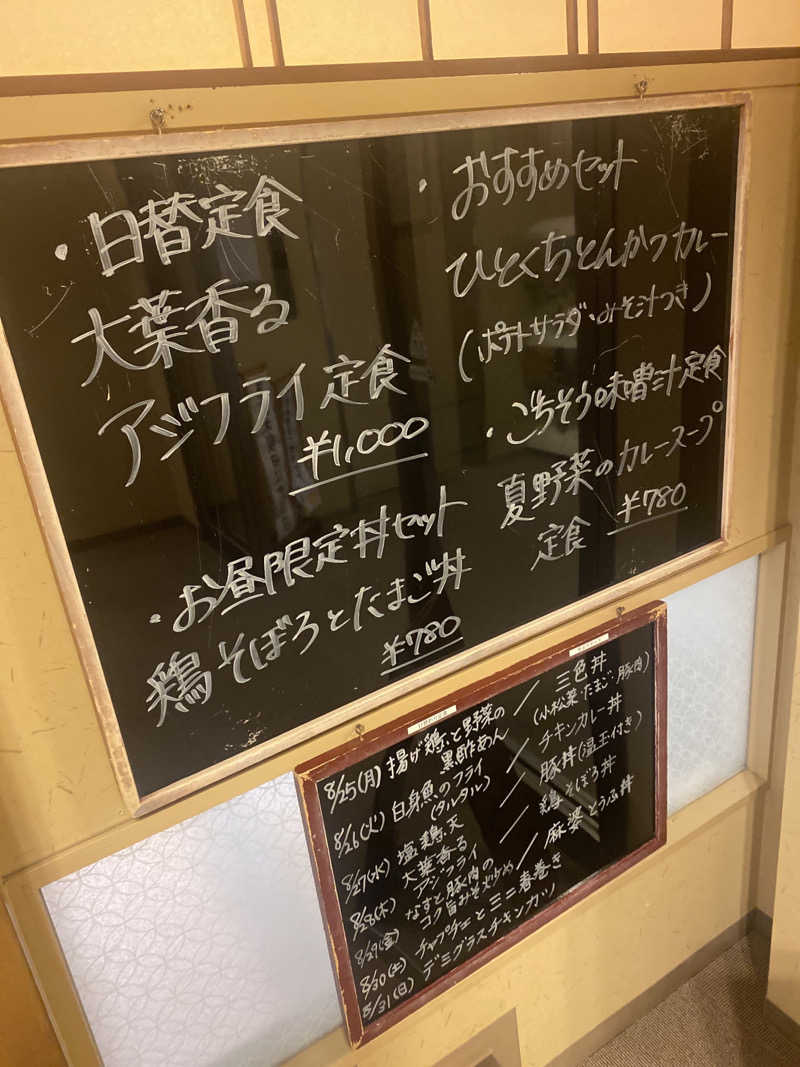 ・日替定食
大葉香る
アジフライ定食
¥1,000
・お昼限定丼セット
鶏そぼろとたまご丼
¥780
・おすすめセット
ひとくちとんかつカレー
(ポテトサラダ・みそ汁つき)
・ごちそう味噌汁定食
夏野菜のカレースープ
定食 ¥780
8/25(月) 揚げ鶏と野菜の
黒酢あん / 三色丼
(小松菜・たまご・豚肉)
8/26(火) 白身魚のフライ
(タルタル) / チキンカレー丼
8/27(水) 塩鶏天 / 豚丼(温玉付き)
8/28(木) 大葉香る
アジフライ / 鶏そぼろ丼
8/29(金) なすと豚肉の
コク旨みそ炒め / 麻婆とうふ丼
8/30(土) チャプチェとミニ春巻き
8/31(日) デミグラスチキンカツ